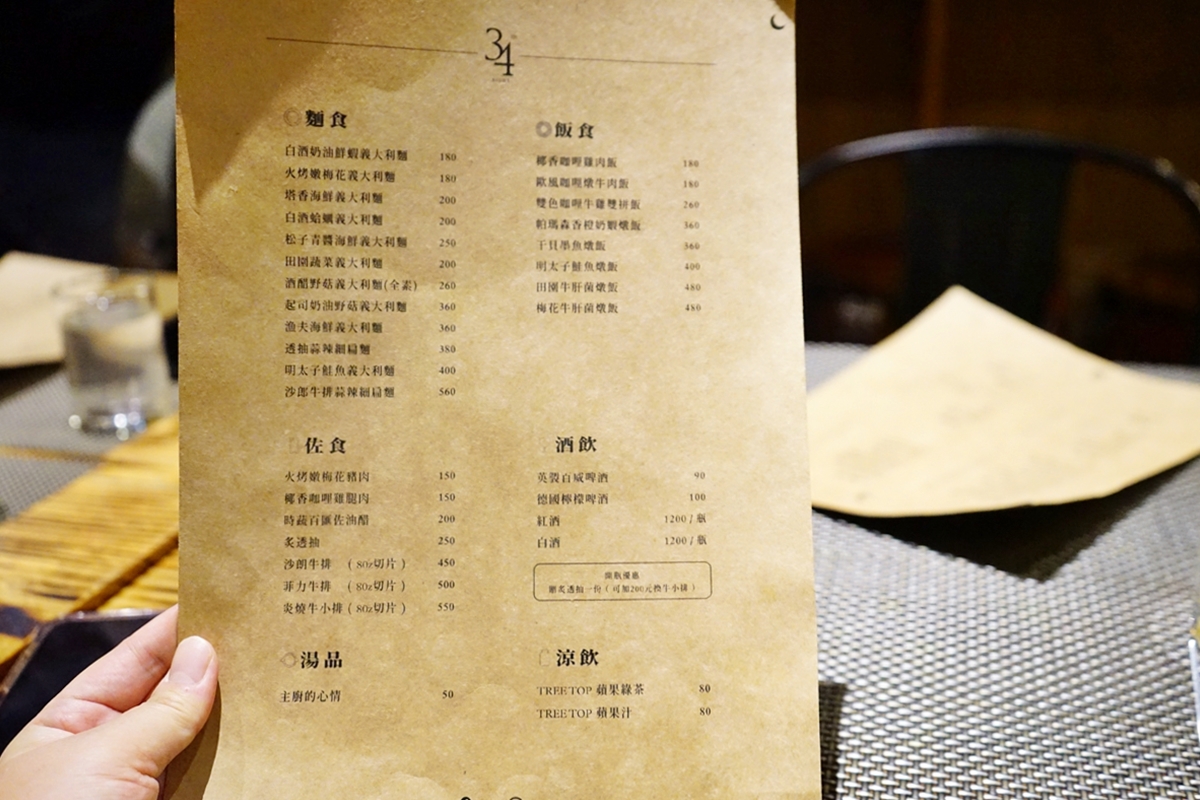 34
麵食
白酒奶油鮮蝦義大利麵 180
火烤嫩梅花義大利麵 180
塔香海鮮義大利麵 200
白酒蛤蠣義大利麵 200
松子青醬海鮮義大利麵 250
田園蔬菜義大利麵 200
酒醋野菇義大利麵(全素) 260
起司奶油野菇義大利麵 360
漁夫海鮮義大利麵 360
透抽蒜辣細扁麵 380
明太子鮭魚義大利麵 400
沙郎牛排蒜辣細扁麵 560
飯食
椰香咖哩雞肉飯 180
歐風咖哩燉牛肉飯 180
雙色咖哩牛雞雙拼飯 260
帕瑪森香橙奶蝦燉飯 360
干貝墨魚燉飯 360
明太子鮭魚燉飯 400
田園牛肝菌燉飯 480
梅花牛肝菌燉飯 480
佐食
火烤嫩梅花豬肉 150
椰香咖哩雞腿肉 150
時蔬百匯佐油醋 200
炙透抽 250
沙朗牛排 (8oz切片) 450
菲力牛排 (8oz切片) 500
炎燒牛小排 (8oz切片) 550
酒飲
英裝百威啤酒 90
德國檸檬啤酒 100
紅酒 1200 / 瓶
白酒 1200 / 瓶
開瓶優惠
贈炙透抽一份 ( 可加200元換牛小排 )
湯品
主廚的心情 50
涼飲
TREE TOP 蘋果綠茶 80
TREE TOP 蘋果汁 80